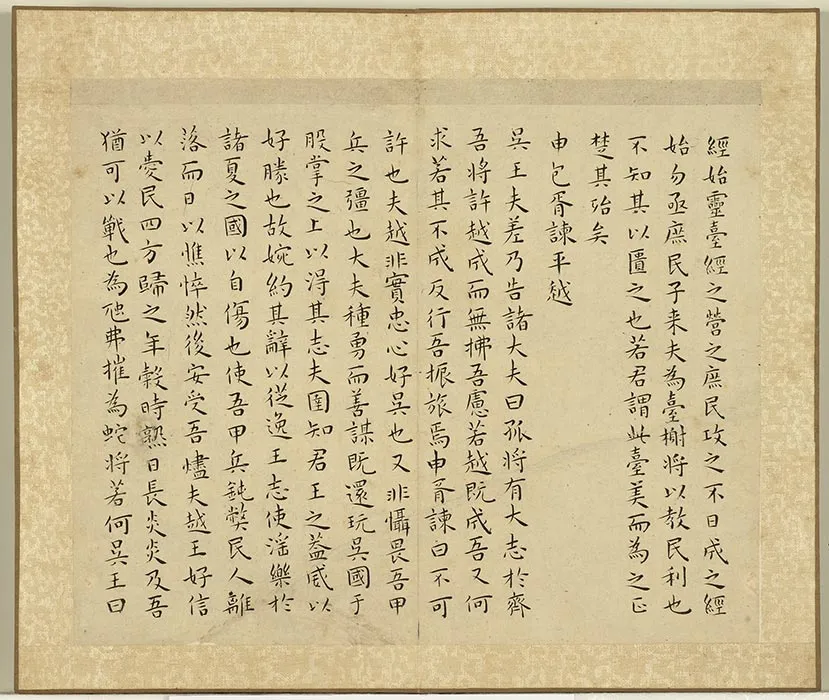 經始靈臺經之營之庶民攻之不日成之經
始勿亟庶民子来夫為臺榭将以教民利也
不知其以匱之也若君謂此臺美而為之正
楚其殆矣
申包胥諫平越
吳王夫差乃告諸大夫曰孤将有大志於齊
吾将許越成而無拂吾慮若越既成吾又何
求若其不成反行吾振旅焉申胥諫曰不可
許也夫越非實忠心好吳也又非懾畏吾甲
兵之彊也大夫種勇而善謀既還玩吳國于
股掌之上以淂其志夫固知君王之葢威以
好勝也故婉約其辭以從逸王志使淫樂於
諸夏之國以自傷也使吾甲兵鈍獘民人離
落而日以憔悴然後安受吾燼夫越王好信
以愛民四方歸之年穀時熟日長炎炎及吾
猶可以戰也為虺弗摧為蛇将若何吳王曰